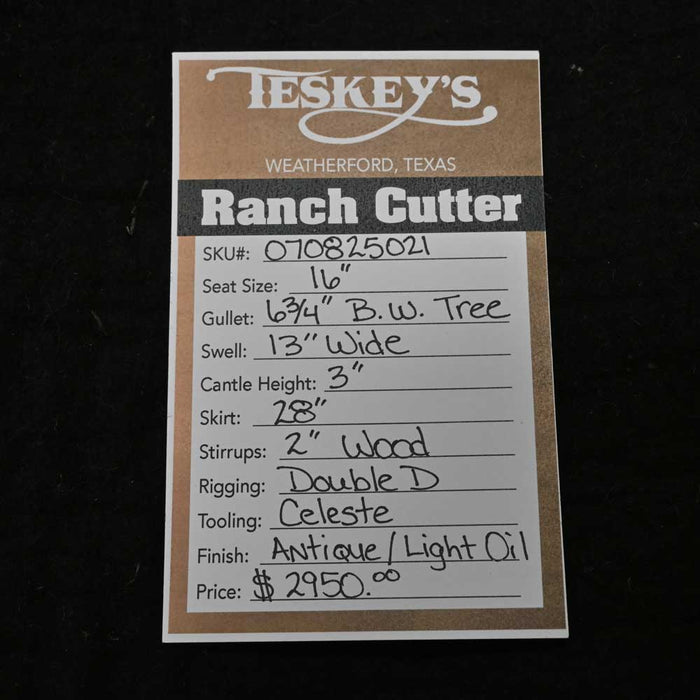 TESKEY'S
WEATHERFORD, TEXAS
Ranch Cutter
SKU#: 070825021
Seat Size: 16"
Gullet: 6 3/4" B.W. Tree
Swell: 13" Wide
Cantle Height: 3"
Skirt: 28"
Stirrups: 2" Wood
Rigging: Double D
Tooling: Celeste
Finish: Antique/Light Oil
Price: $2950.00